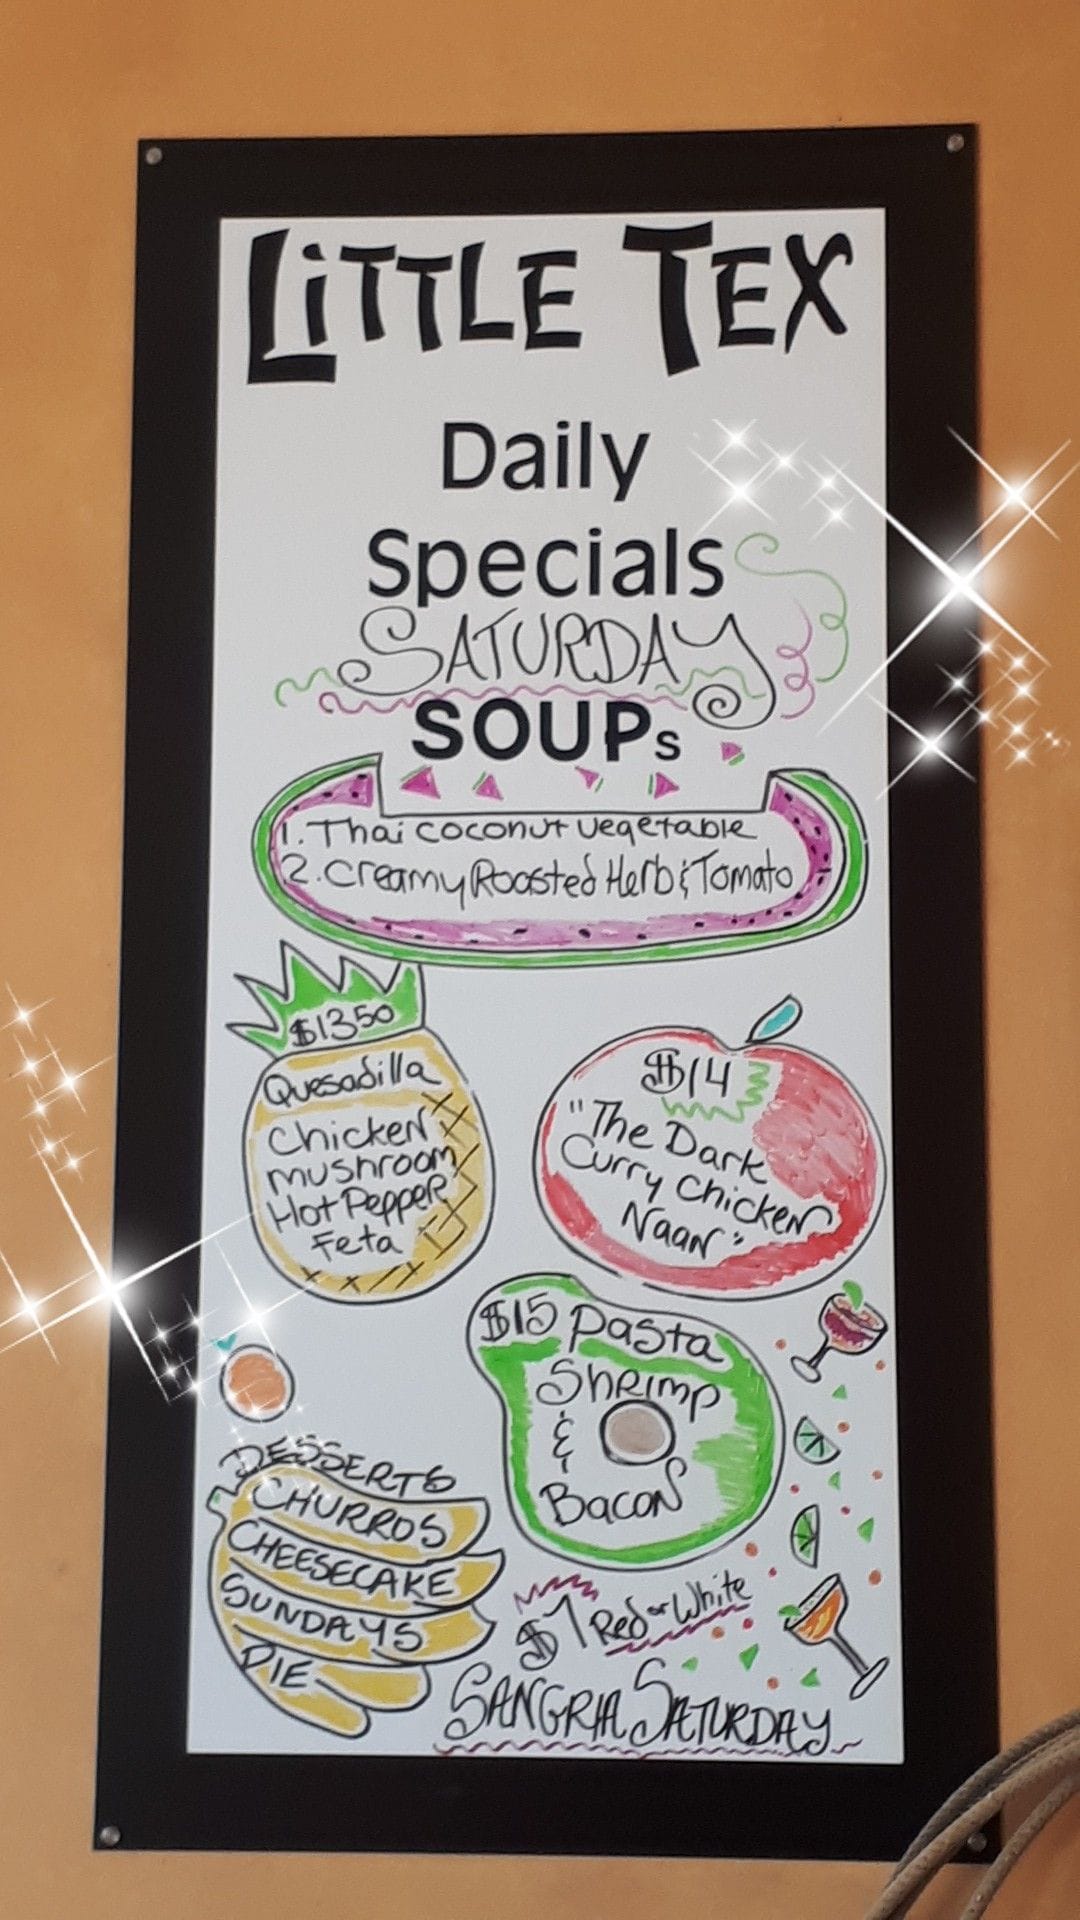 LiTTLE TEX
Daily
Specials
SATURDAY
SOUPs
1. Thai coconut vegetable
2. Creamy Roasted Herb & Tomato
$13.50
Quesadilla
Chicken
mushroom
Hot Pepper
Feta
$14
"The Dark
Curry Chicken
Naan"
$15 Pasta
Shrimp
&
Bacon
DESSERTS
CHURROS
CHEESECAKE
SUNDAYS
PIE
$7 Red or White
SANGRIA SATURDAY